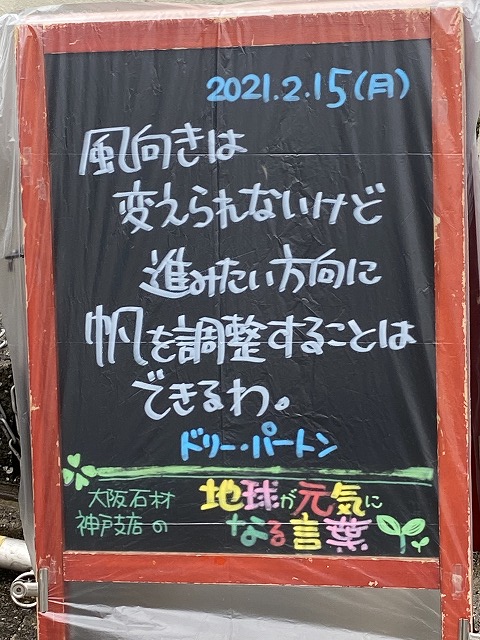 2021.2.15(月)
風向きは
変えられないけど
進みたい方向に
帆を調整することは
できるわ。
ドリー・パートン
大阪石材
神戸支店の
地球が元気に
なる言葉